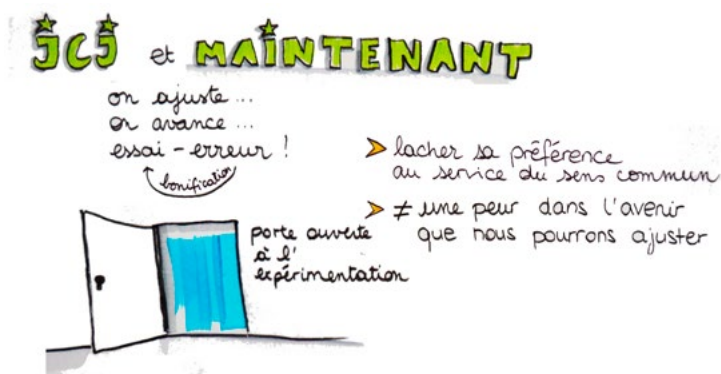 iCi et MAiNTENANT
on ajuste ...
on avance ...
essai - erreur !
bonification
porte ouverte
à l'
expérimentation
➤ lacher sa préférence
au service du sens commun
➤ ≠ une peur dans l'avenir
que nous pourrons ajuster